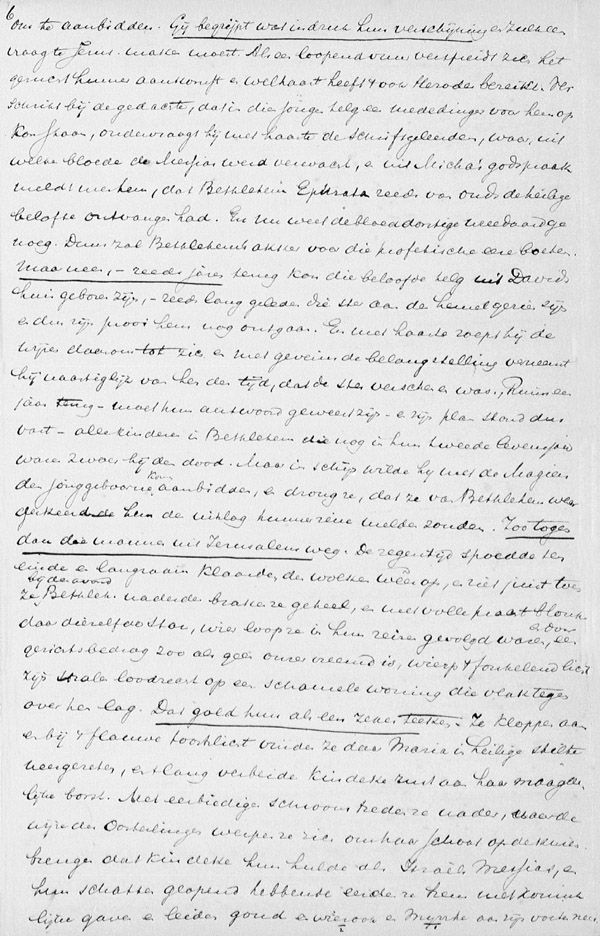 6
om te aanbidden. Gij begrijpt wat indruk hun verschijning en zulk een
vraag te Jerus. maken moest. Als een loopend vuur verspreidt zich het
gerucht hunner aankomst en weldra heeft 't ook Herodes bereikt. Ver
schrikt bij de gedachte, dat in die jonge telg een mededinger voor hem op
kon staan, ondervraagt hij met haast de schriftgeleerden, waar, uit
welke bloede de Messias werd verwacht, en uit Micha's godspraak
meldt men hem, dat Bethlehem Ephrata reeds van ouds de heilige
belofte ontvangen had. En nu weet de bloeddorstige
noeg. Dan zal Bethlehems akker voor die profetische eere boeten.
Maar neen, - reeds jaren terug kon die beloofde telg uit Davids
huis geboren zijn, - reeds lang geleden die ster aan de hemel gezien zijn
en dus zijn prooi hem nog ontgaan. En met haast roept hij de
wijzen daarom tot zich en met geveinsde belangstelling verneemt
hij naarstiglijk van hen den tijd, dat de ster verschenen was. Ruim een
jaar terug - moet hun antwoord geweest zijn - en zijn plan stond dus
vast - alle kinderen in Bethlehem die nog in hun tweede levensjaar
waren zwoer hij den dood. Maar in schijn wilde hij met de Magiërs
den jonggeboren Kon. aanbidden, en drong ze, dat ze van Bethlehem weer
gekeerd de hem de uitslag hunner reize melden zouden. Zoo togen
dan die mannen uit Jerusalem weg. De regentijd spoedde ten
einde en langzaam klaarden de wolken weer op, en niet juist toen
ze bij de avond Bethleh. naderden braken ze geheel, en met volle pracht blonk
daar diezelfde star, wier loop ze in hun reize gevolgd waren, en door
gezichtsbedrog zoo als geen onzer vreemd is, wierp 't fonkelend licht
zijn stralen loodrecht op een schamele woning die vlak tegen
over hen lag. Dat gold hun als een zeker teeken. Ze kloppen aan
en bij 't flauwe toortslicht vinden ze daar Maria in heilige stilte
neergezeten, en 't lang verbeide kindeke rust aan haar maagde
lijke borst. Met eerbiedigen schroom treden ze nader, waarde
wijzen der Oosterlingen werpen ze zich om haar schoot op de knieën
brengen dat kindeke hun hulde als Israëls Messias, en
hun schatten geopend hebbende bieden ze hem met konink
lijke gaven en leiden goud en wierook en myrrhe aan zijn voeten neer.